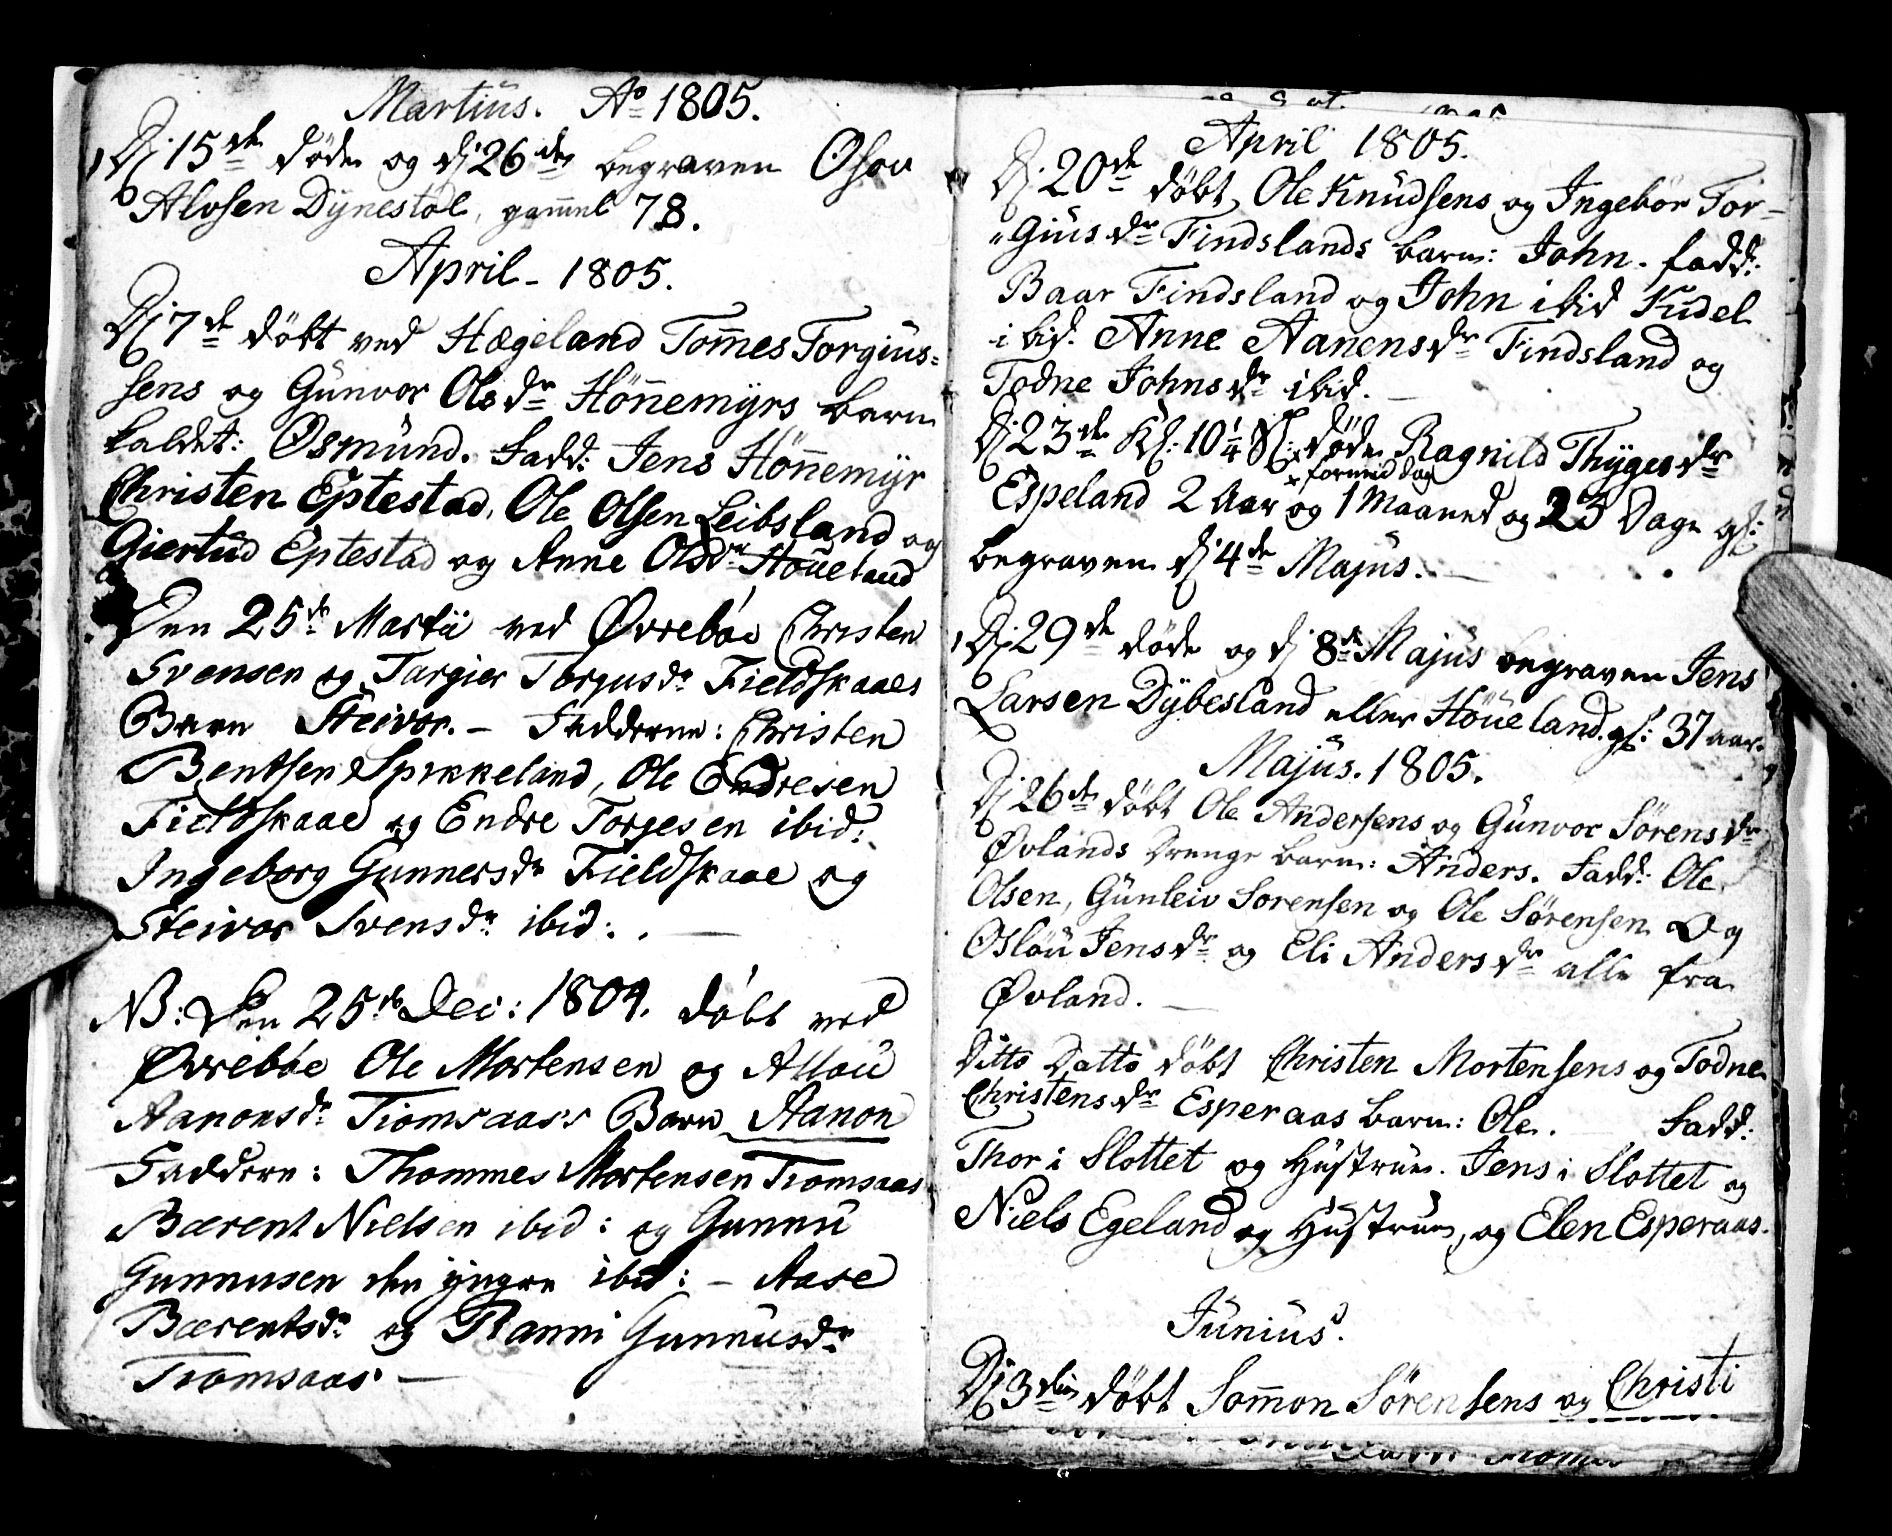 Martius. Ao 1805.
Dj 15de døde og dj 26de begraven Osou
Alvsen Dynestøl, gammel 78.
April - 1805.
Dj 7de døbt ved Hægeland Tommes Torgius-
sens og Gunvor Olsdr Hønnemyrs barn
kaldet: Osmund. Fadd: Jens Hønnemyr
Christen Eptestad, Ole Olsen Leibsland og
Giertud Eptestad og Anne Olsdr Høueland
Den 25de Martii ved Øvrebøe Christen
Svensen og Targier Torgusdr Fieldskaaes
Barn Steivor. - Fadderne: Christen
Bentsen Spikkeland, Ole Endresen
Fieldskaae og Endre Torgesen ibid:
Ingeborg Gunnersdr Fieldskaae og
Steivor Svensdr ibid: .
NB: Den 25de Dec: 1804. døbt ved
Øvrebøe Ole Mortensen og Allou
Aanonsdr Tromsaass Barn Aanon
Faddere: Thommes Mortensen Tromsaas
Bærent Nielsen ibid: og Gunnu
Gunnusen den yngre ibid: - Aase
Bærentsdr og Ranni Gunnusdr
Tromsaas -
April 1805.
Dj 20de døbt Ole Knudsens og Ingebor Tor-
"giusdr Findslands barn: John. fadd:
Baar Findsland og John ibid Kudel
ibid. Anne Aanensdr Findsland og
Todne Johnsdr ibid.
Dj 23de Kl: 10 1/4 Sl: x døde Ragnild Thygesdr
x formid dag
Espeland 2 Aar og 1 Maaned og 23 Dage gl:
begraven dj 4de Majus.
Dj 29de døde og dj 8de Majus begraven Jens
Larsen Dybesland eller Høueland. gl: 37 aar.
Majus. 1805.
Dj 26de døbt Ole Andersens og Gunvor Sørensdr
Øvlands Drenge barn: Anders. Fadd: Ole
Olsen, Gunleiv Sorensen og Ole Sørensen Og
Oslou Jensdr og Eli Andersdr alle fra
Øvland.
Ditto Datto døbt Christen Mortensens og Todne
Christensdr Esperaas barn: Ole. Fadd:
Thor i Slottet og Hustrue. Jens i Slottet og
Niels Egeland og Hustrue, og Elen Esperaas.
Junius.
Dj 3die døbt Sommon Sørensens og Christi